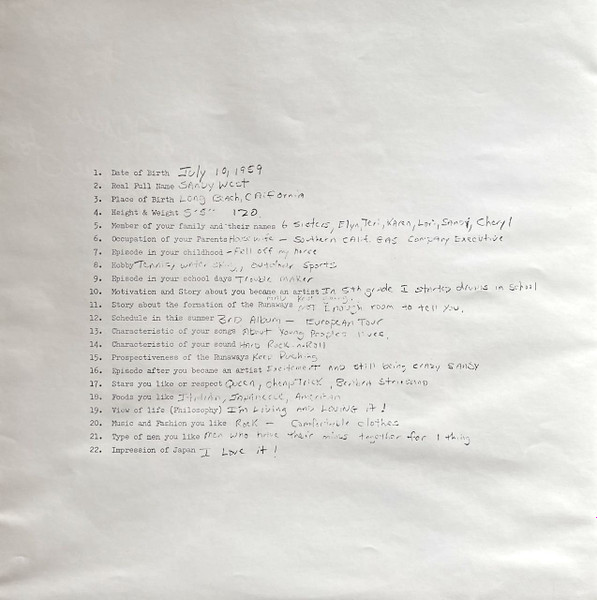 1. Date of Birth July 10, 1959
2. Real Full Name Sandy West
3. Place of Birth Long Beach, California
4. Height & Weight 5'5" 120
5. Member of your family and their names 6 sisters, Elyn, Teri, Karen, Lori, Sandy, Cheryl
6. Occupation of your Parents Housewife - Southern Calif. Gas Company Executive
7. Episode in your childhood - Fell off my horse
8. Hobby Tennis, water skiing, outdoor sports
9. Episode in your school days Trouble maker
10. Motivation and Story about you became an artist In 5th grade I started drums in school
and kept going.
11. Story about the formation of the Runaways Not Enough room to tell you.
12. Schedule in this summer 3rd Album - European Tour
13. Characteristic of your songs About Young Peoples lives.
14. Characteristic of your sound Hard Rock-n-Roll
15. Prospectiveness of the Runaways Keep Pushing
16. Episode after you became an artist Excitement and still being crazy Sandy
17. Stars you like or respect Queen, Cheap Trick, Streisand
18. Foods you like Italian, Japanese, American
19. View of life (Philosophy) I'm Living and Loving it!
20. Music and Fashion you like Rock - Comfortable clothes
21. Type of men you like Men who have their minds together for 1 thing
22. Impression of Japan I Love it!